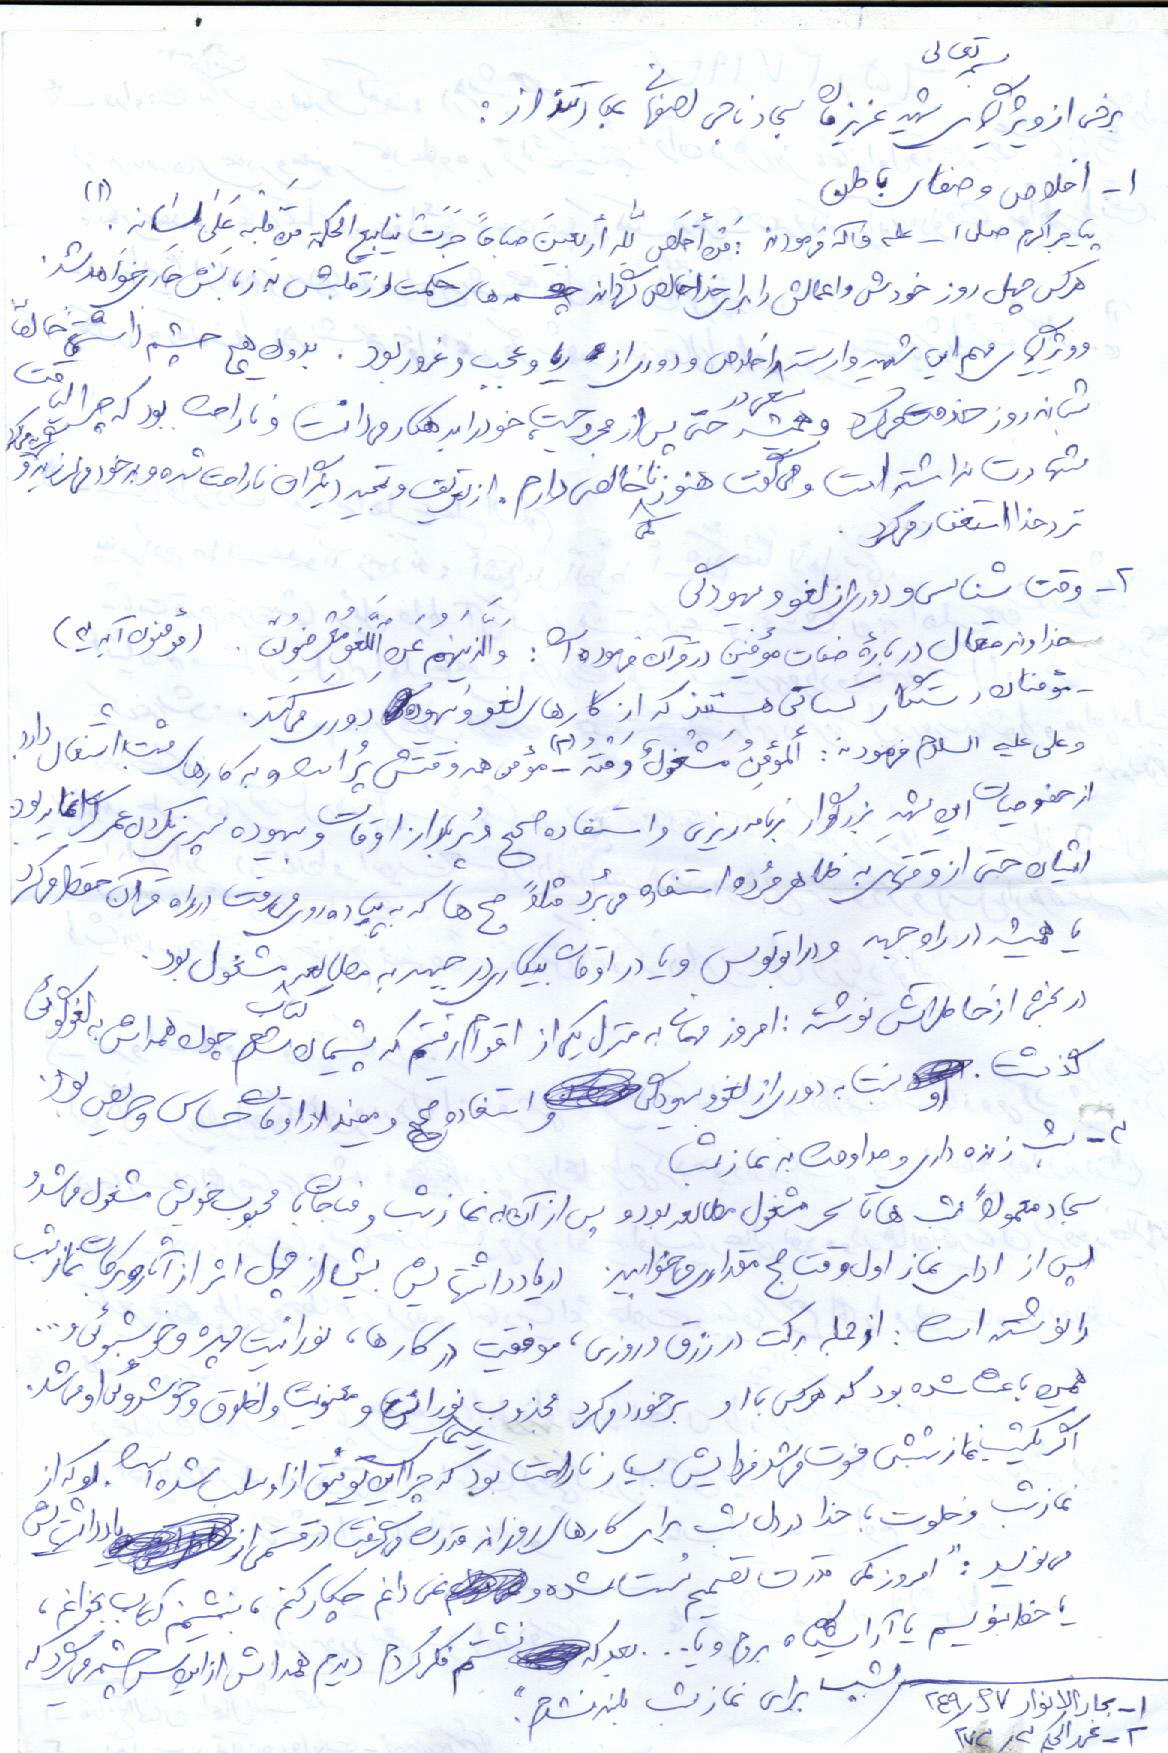 بسمه تعالی
برخی از ویژگیهای شهید عزیزمان سجاد ناجی اصفهانی عبارتند از :
۱- اخلاص و صفای باطن
پیامبر اکرم صلی الله علیه و آله فرمودند : مَن أَخلَصَ لِلّهِ أربَعینَ صباحاً جَرَت ینابیع الحکمة مِن قَلبِه عَلی لِسَانِه . (۱)
هرکس چهل روز خودش و اعمالش را برای خدا خالص گرداند چشمه های حکمت از قلبش به زبانش جاری خواهد شد.
ویژگی مهم این شهید وارسته اخلاص و دوری از ریا و عجب و غرور بود . بدون هیچ چشم داشتی خالصاً
شبانه روز خدمت میکرد و همیشه حتی پس از مجروحیت، خود را بدهکار می دانست و ناراحت بود که چرا لیاقت
شهادت نداشته است و می گفت هنوز ناخالصی دارم . از تعریف و تمجید دیگران ناراحت شده و به خود می لرزید و
نزد خدا استغفار میکرد .
۲- وقت شناسی و دوری از لغو و بیهودگی
خداوند متعال درباره صفات مؤمنین در قرآن فرموده است : وَالَّذینَ هُم عَنِ اللَّغوِ مُعرِضُونَ . (مؤمنون آیه ۳)
مؤمنان رستگار کسانی هستند که از کارهای لغو و بیهوده دوری می کنند .
و علی علیه السلام فرمودند : ألمؤمِنُ مَشغُولٌ وَقتُهُ (۲) - مؤمن همه وقتش پُر است و به کارهای مثبت اشتغال دارد.
از خصوصیات این شهید بزرگوار برنامه ریزی و استفاده صحیح و پُربار از اوقات و بیهوده سپری نکردن عمر گرانمایه بود
ایشان حتی از وقتهای به ظاهر مُرده استفاده می بُرد مثلاً صبح ها که به پیاده روی می رفت در راه قرآن حفظ می کرد
یا همیشه در راه جبهه و در اتوبوس و یا در اوقات بیکاری در جبهه به مطالعه کتاب مشغول بود .
در بخشی از خاطراتش نوشته : امروز مهمانی به منزل یکی از اقوام رفتیم که پشیمان شدم چون همه اش به لغوگوئی
گذشت . او نسبت به دوری از لغو و بیهودگی و استفاده صحیح و مفید از اوقات حساس و حریص بود.
۳- شب زنده داری و مداومت به نماز شب
سجاد معمولاً شب ها تا سحر مشغول مطالعه بود و پس از آن به نماز شب و مناجات با محبوب خویش مشغول می شد و
پس از ادای نماز اول وقت صبح مقداری می خوابید . در یادداشتهایش بیش از چهل اثر از آثار و برکات نماز شب
را نوشته است : از جمله برکت در رزق و روزی ، موفقیت در کارها ، نورانیت چهره و خوشبوئی و ...
همین باعث شده بود که هرکس با او برخورد میکرد مجذوب نورانیت سیما و معنویت و اخلاق و خوشروئی او می شد.
اگر یکشب نماز شبش فوت می شد فردایش بسیار ناراحت بود که چرا این توفیق از او سلب شده است . او که از
نماز شب و خلوت با خدا در دل شب برای کارهای روزانه قدرت می گرفت در قسمتی از یادداشتهایش
می نویسد : "امروز کمی قدرت تصمیم سُست شده و نمی دانم چکار کنم ، بنشینم کتاب بخوانم ،
یا خط بنویسم یا آرایشگاه بروم و یا ... بعد که نشستم فکر کردم دیدم همه اش از این سرچشمه میگیرد که
دیشب برای نماز شب بلند نشدم ."
۱- بحار الانوار ۶۷ ر ۲۴۹
۲- غررالحکم